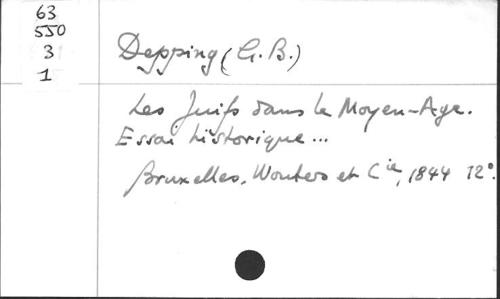 63
550
3
1
Depping (G.B.)
Les Juifs dans le Moyen-Age.
Essai historique...
Bruxelles, Wouters et Cie, 1844 12°.